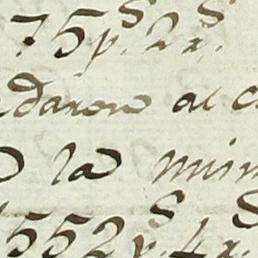 75 p.s 2 r.s
daron al
la
552 p.s 4 r.s